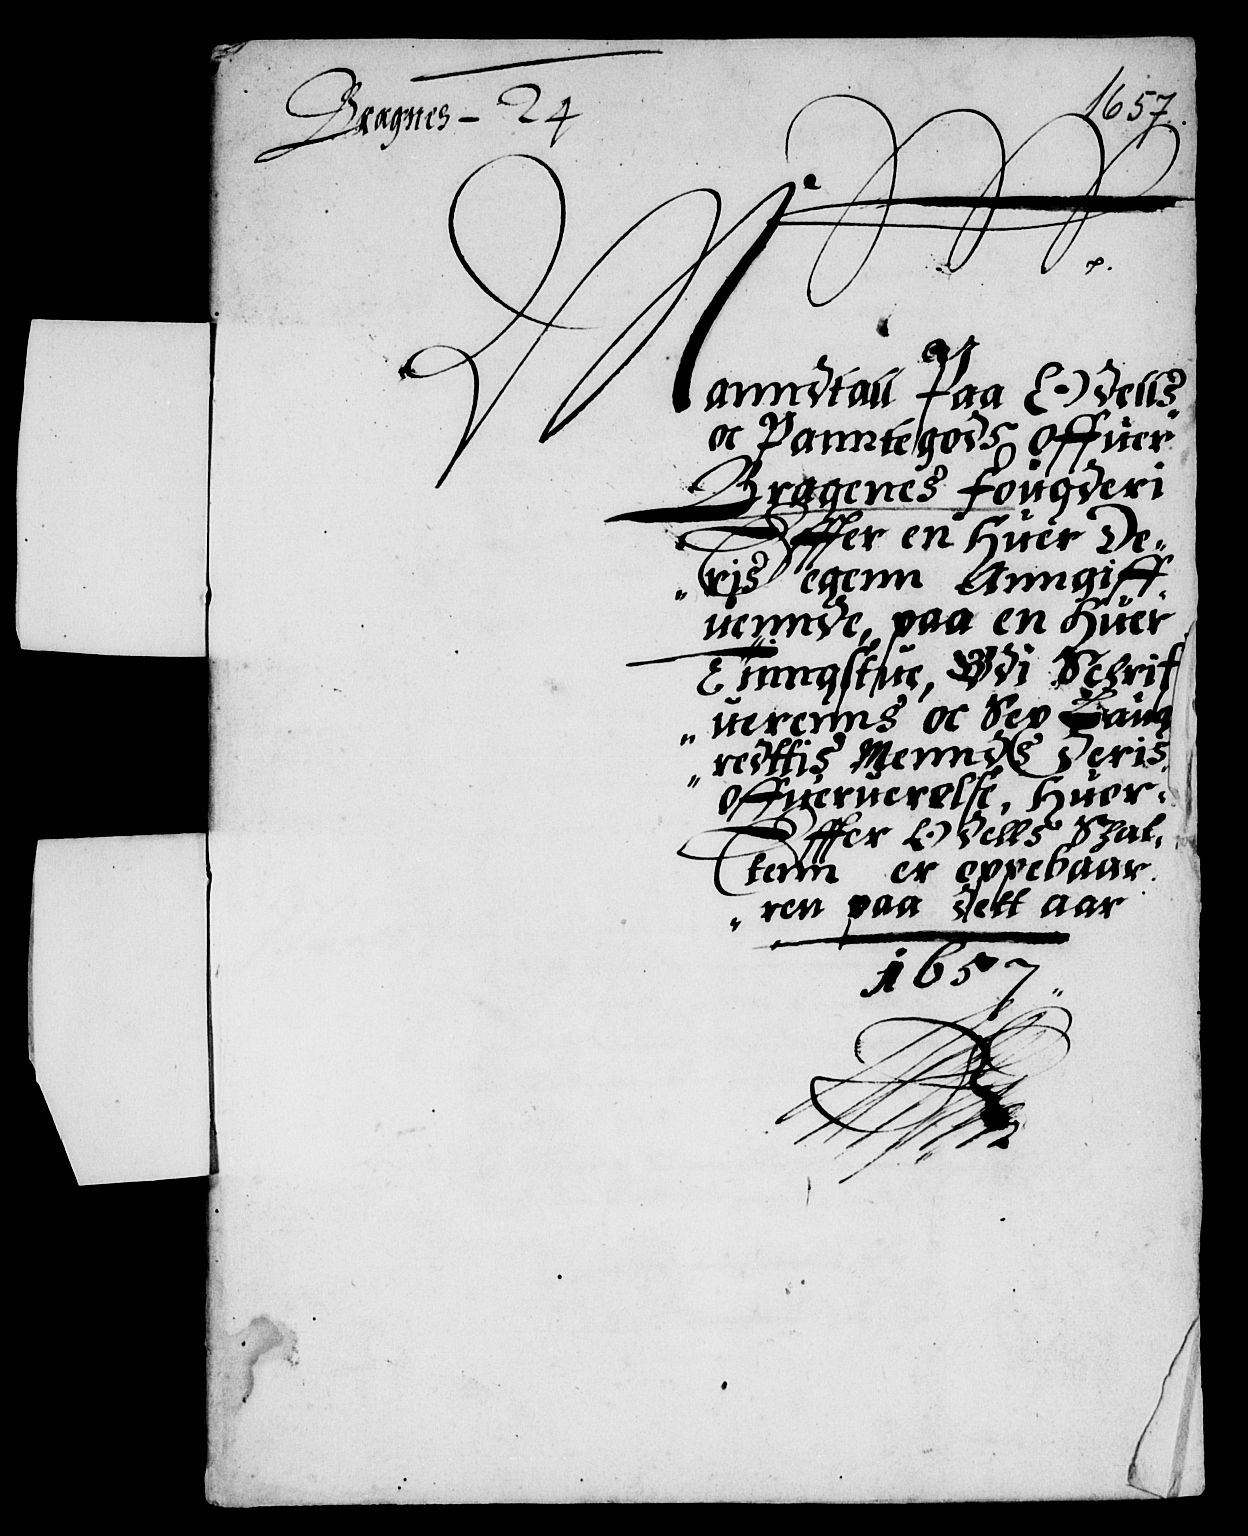 Bragnes - 24
1657.
Manndtall Paa Odells
oc Panntegods offuer
Bragenes fougderi
Effter en huer De„
„ris egenn Anngiff
uennde, paa en huer
Tinngstue, Udi Schrif
„uerenns oc Sex Laug
„redttis Mennds deris
offueruerelse, huor„
Effter Odells Schat„
tenn er oppebaar
„ren paa dett aar
1657„